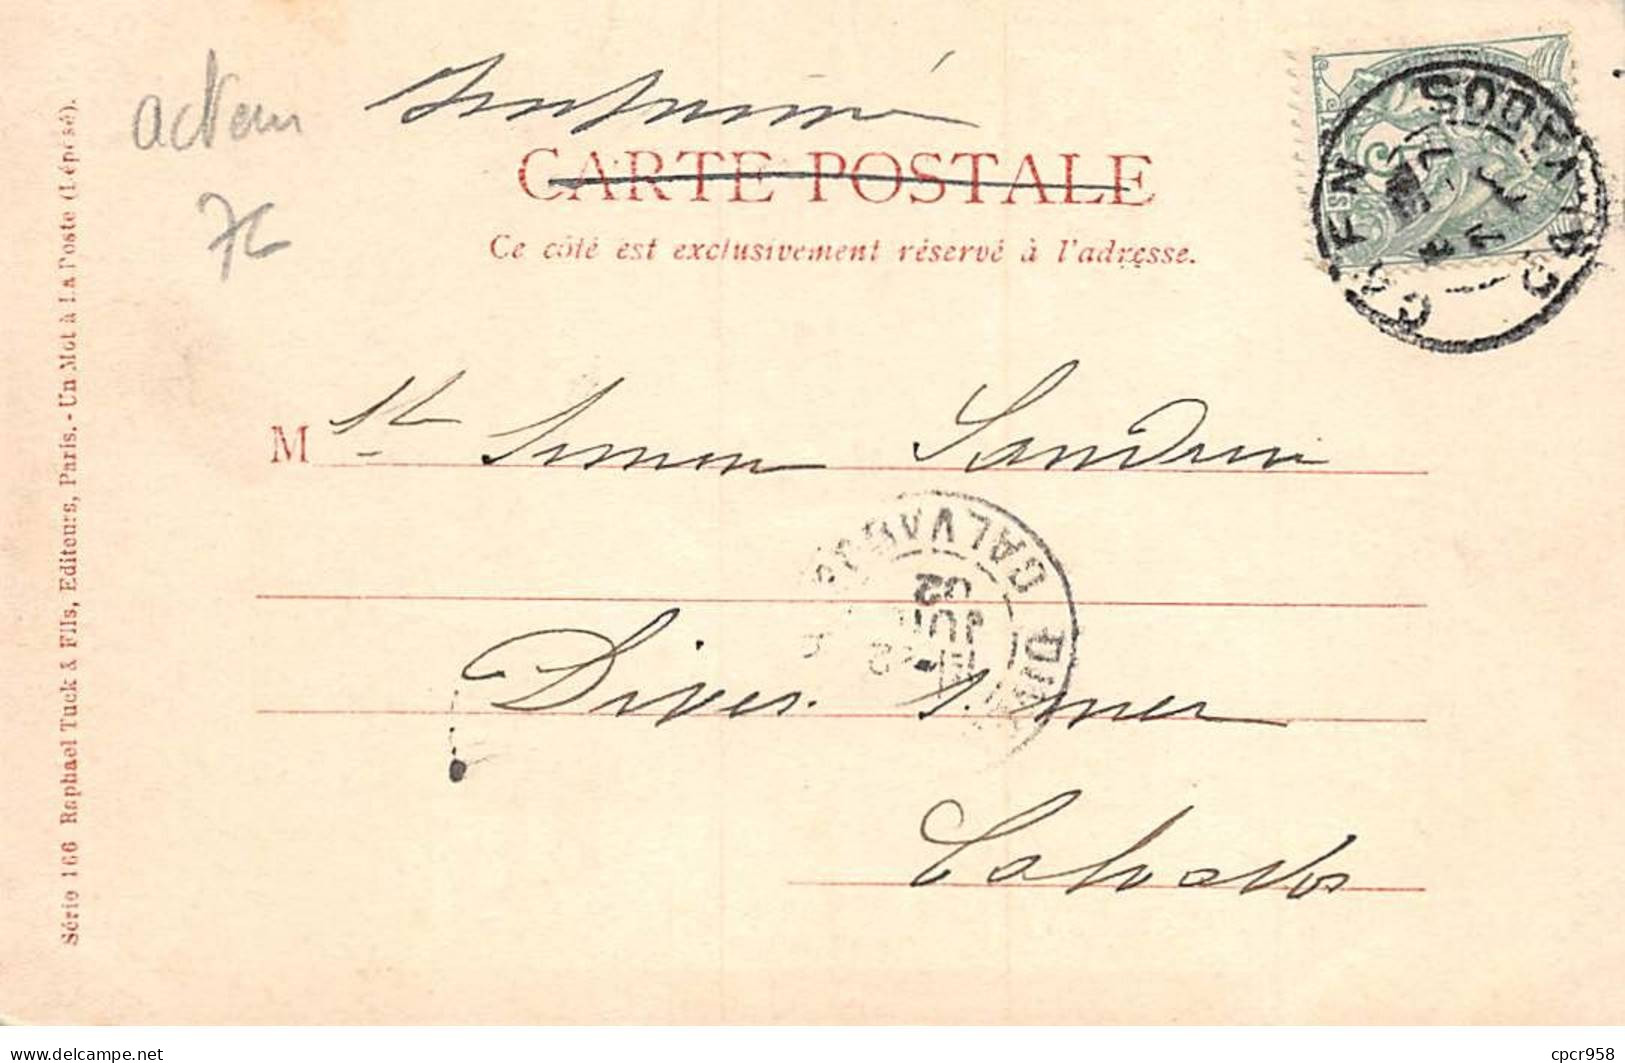 acteur
Imprimé
7€
CARTE POSTALE
Ce côté est exclusivement réservé à l'adresse.
CAEN
CALVADOS
M St Simon Sandrin
CALVADOS
02
JUIL
Dives s. mer
Calvados
Série 166 Raphael Tuck & Fils, Editeurs, Paris. - Un Mot à La Poste (Déposé).
delcampe.net
cpcr958